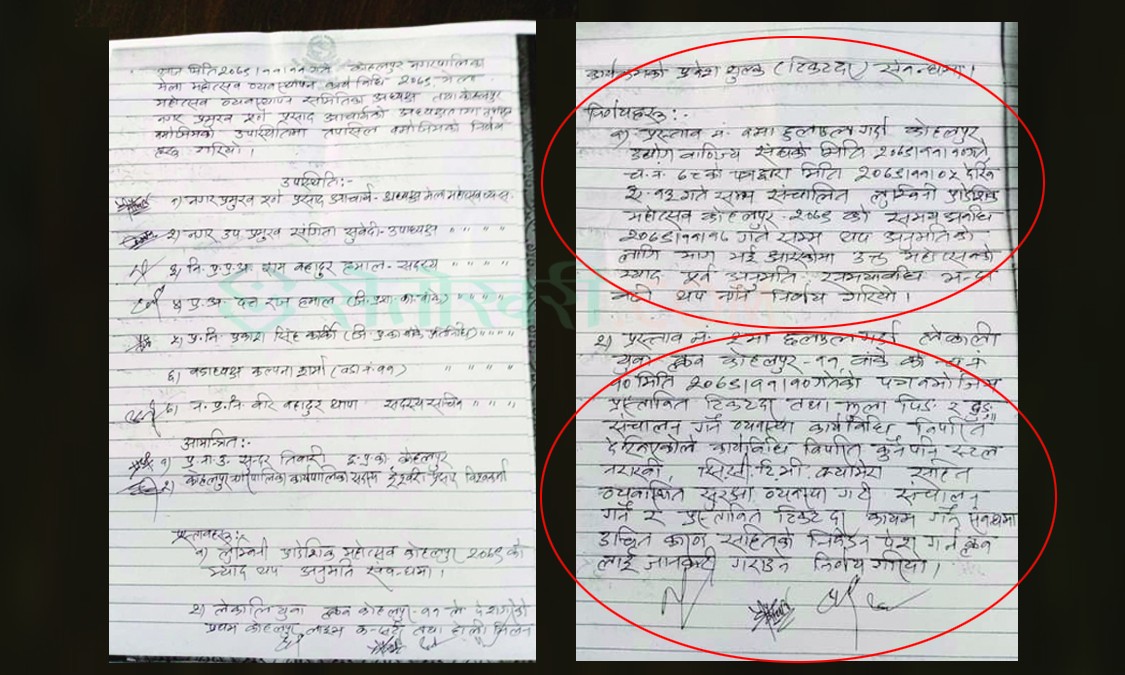 आज मिति २०७९।११।११ गते कोहलपुर नगरपालिका
मेला महोत्सव व्यवस्थापन कार्यविधि २०७९ मेला
महोत्सव व्यवस्थापन समितिका अध्यक्ष तथा कोहलपुर
नगर प्रमुख पूर्ण प्रसाद आचार्यको अध्यक्षतामा
बमोजिमको उपस्थितिमा तपसिल बमोजिमको निर्णय
गरियो ।
उपस्थितिः-
१) नगर प्रमुख पूर्ण प्रसाद आचार्य - अध्यक्ष मेला महोत्सव व्य.स.
२) नगर उप प्रमुख संगिता सुवेदी - उपाध्यक्ष " " "
३) नि.प्र.प्र.अ. शाम बहादुर हमाल - सदस्य " " "
४) प्र.अ. दत्त राज हमाल (जि.प्रशा.का.बाँके) " " " "
५) प्र.नि. प्रकाश सिंह कार्की (जि.प्र.का बाँके प्रतिनिधि) " " " "
६) वडाध्यक्ष कल्पना शर्मा (वडा नं. ११) " " "
७) न.प्र.नि. वीर बहादुर थापा सदस्य सचिव " " "
आमन्त्रितः-
१) प्र.ना.उ. सुन्दर तिवारी इ.प्र.का. कोहलपुर
२) कोहलपुर नगरपालिका कार्यपालिका सदस्य ईश्वरी प्रसाद विश्वकर्मा
प्रस्तावहरुः-
१) लुम्बिनी प्रादेशिक महोत्सव कोहलपुर २०७९ को
म्याद थप अनुमति सम्बन्धमा ।
२) युवा क्लब कोहलपुर - ११ ले
प्रथम कोहलपुर कन्सर्ट तथा होली मिलन
कार्यक्रमको प्रवेश शुल्क (टिकट दर) सम्बन्धमा ।
निर्णयहरुः-
१) प्रस्ताव नं. १ मा छलफल गर्दा कोहलपुर
उद्योग वाणिज्य संघको मिति २०७९।११।१० गते
च.नं. ६८ को पत्रद्वारा मिति २०७९।११।०२ देखि
१३ गते सम्म संचालित लुम्बिनी प्रादेशिक
महोत्सव कोहलपुर - २०७९ को समय अवधि
२०७९।११।१६ गते सम्म थप अनुमतिको
लागि माग भई आएकोमा उक्त महोत्सवको
म्याद पूर्व अनुमति समयावधि भन्दा
बढी थप नगर्ने निर्णय गरियो ।
२) प्रस्ताव नं. २ मा छलफल गर्दा
युवा क्लब कोहलपुर - ११ बाँके को च.नं.
१० मिति २०७९।११।१० गतेको पत्र बमोजिम
प्रस्तावित टिकट दर तथा
संचालन गर्ने व्यवस्था कार्यविधि विपरित
देखिएकोले कार्यविधि विपरित कुनै पनि स्टल
नराखी, सि.सी.टि.भी क्यामेरा सहित
व्यवस्थित सुरक्षा व्यवस्था गरी संचालन
गर्ने र प्रस्तावित टिकट दर कायम गर्ने सम्बन्धमा
उचित कारण सहितको निवेदन पेश गर्न क्लब
लाई जानकारी गराउने निर्णय गरियो ।
सेतोखरी